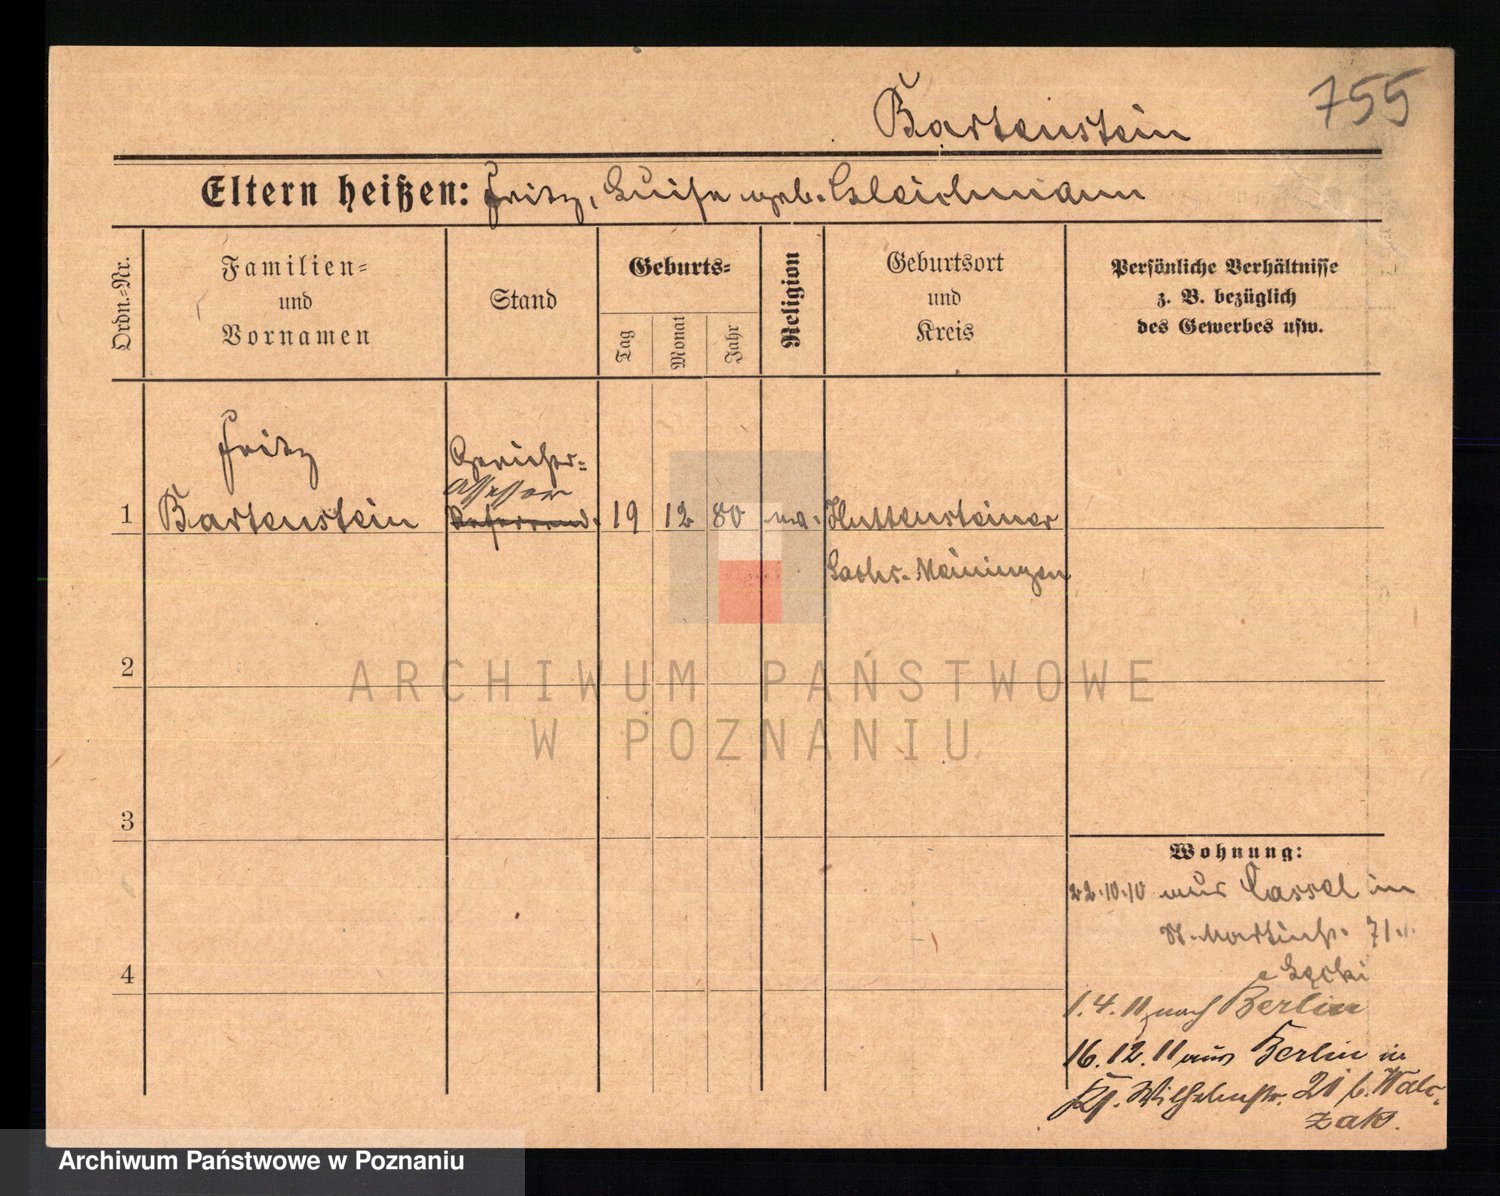 755
Bartenstein
Eltern heißen: Fritz, Luise geb. Gleichmann
Ordn.-Nr.
Familien-
und
Vornamen
Stand
Geburts-
Tag
Monat
Jahr
Religion
Geburtsort
und
Kreis
Persönliche Verhältnisse
z. B. bezüglich
des Gewerbes usw.
Fritz
Gerichts-
Assessor
1 Bartenstein Referend. 19 12 80
Sachs. Meiningen
ARCHIWUM PAŃSTWOWE
W POZNANIU
2
3
4
Wohnung:
22.10.10 aus Cassel in
St. Martinstr. 71
1.4.11 nach Berlin
16.12.11 aus Berlin in
Wilhelmstr. 21 b. Walc-
zak.
Archiwum Państwowe w Poznaniu